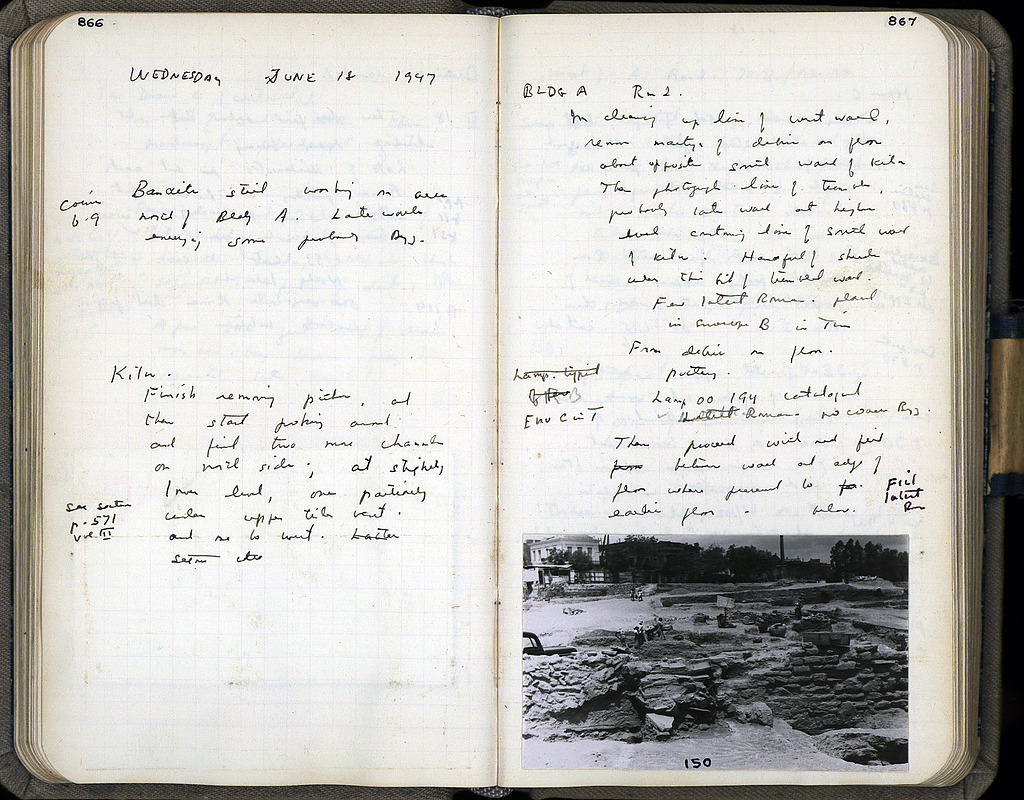 866
WEDNESDAY JUNE 18 1947
Coins
6-9
still working in area
north of Bldg A. Late walls
some probably Byz.
Kiln.
Finish removing pictu, and
then start poking around
and find two more channels
on north side; at slightly
lower level, one partially
under upper tile vent.
and one to west. Later
see section
p. 571
vol III
867
BLDG A Rm 2.
In cleaning up line of west wall,
remove of debris on floor
about opposite south wall of kiln
Then photograph line of trench,
probably late wall at higher
level continuing line of south wall
of kiln. Handful of sherds
under this bit of wall.
Few latest Roman. placed
in B in Tin
From debris on floor.
pottery.
Lamp 00 194 catalogued
Roman. no coarse Byz.
Then proceed with red fill
between wall and edge of
floor where present to
earlier floor - below.
Fill
latest
Rm
150